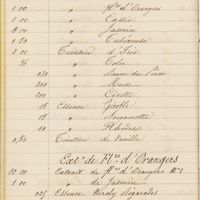 1 00 " Fl.rs d'Orangers
1 00 " Cassie
4 00 " Jasmin
0 50 " Tubéreuse
2 00 Teinture d'Iris
55 " Tolu
030 "
500 " Musc
200 " Civette
15 Essence Girofle
15 " Bergamotte
10 " Rhodes
0,50 Teinture de Vanille
Ext.t de Fl.rs d'Orangers
10.00 Extrait de fl.rs d'Orangers N.1
1 00 " de Jasmin
025 Essence Néroly Bigarades